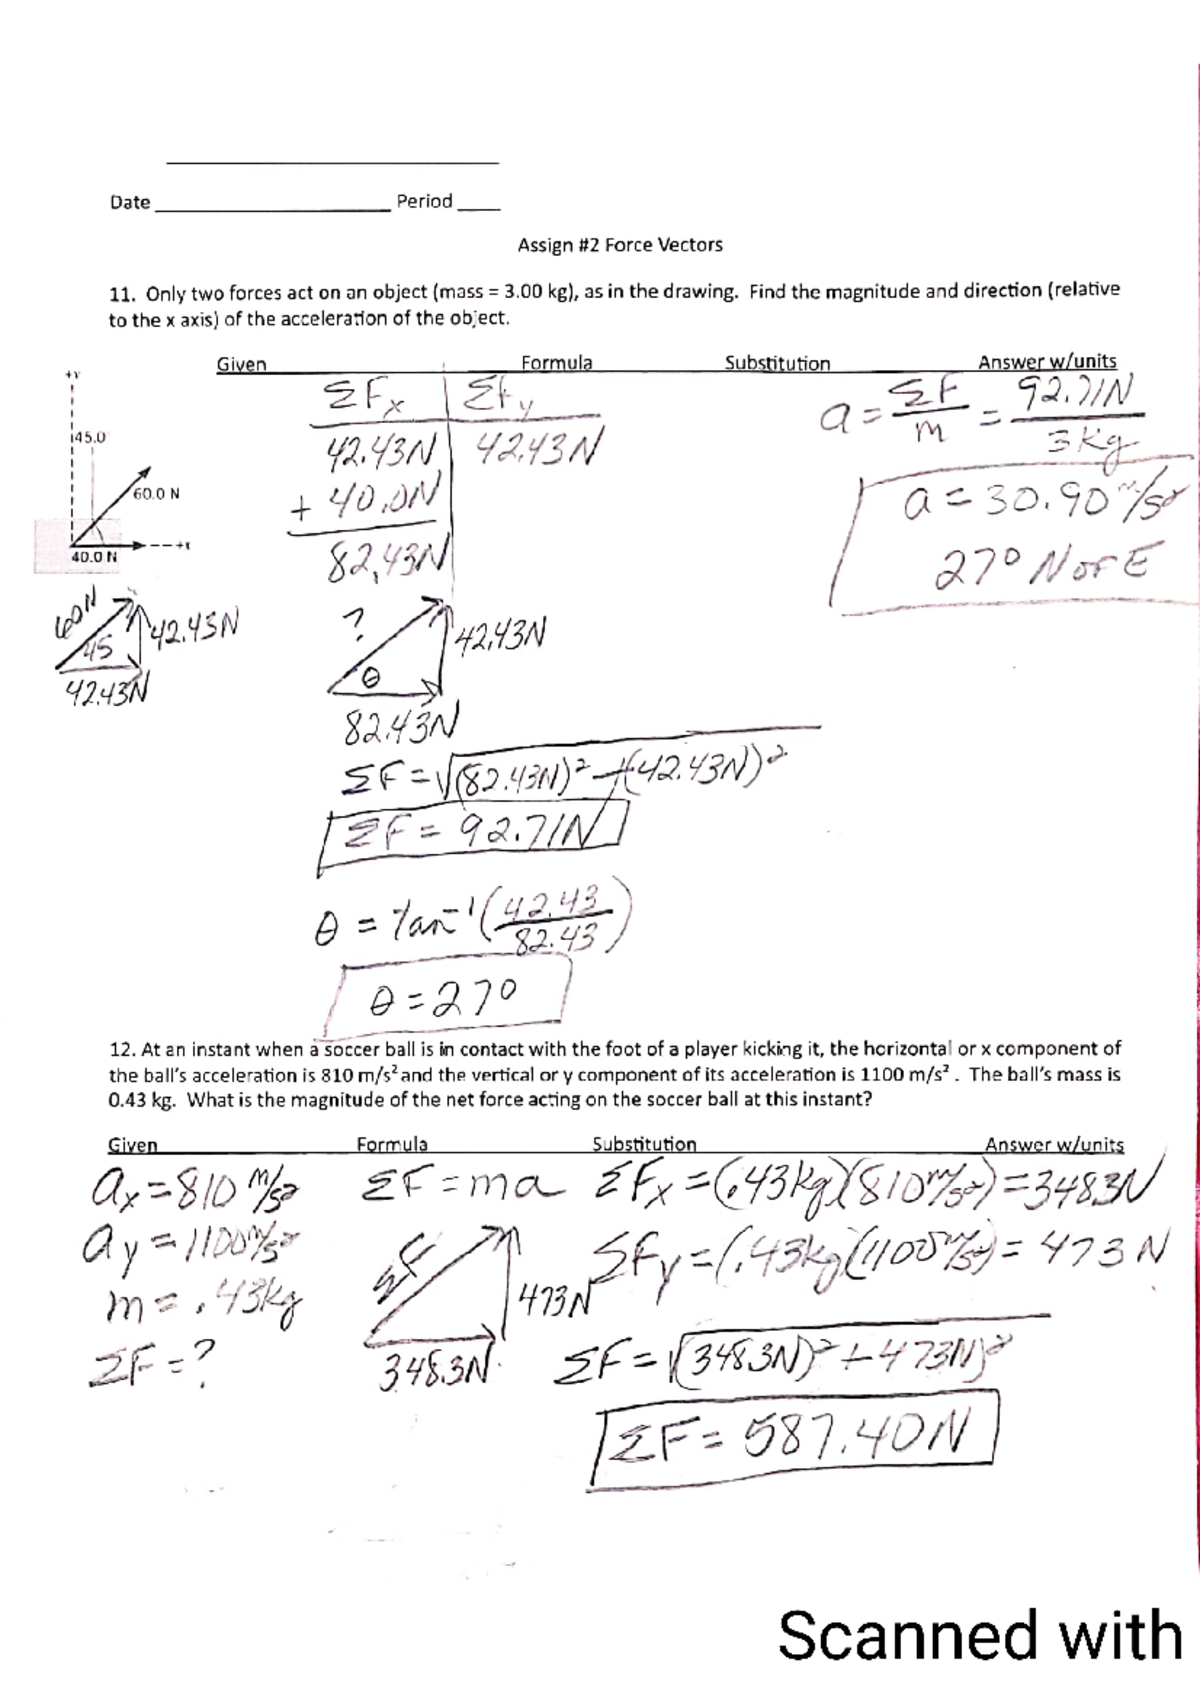 Date Period
Assign #2 Force Vectors
11. Only two forces act on an object (mass = 3.00 kg), as in the drawing. Find the magnitude and direction (relative
to the x axis) of the acceleration of the object.
Given Formula Substitution Answer w/units
+y
45.0
60.0 N
+x
40.0 N
60N
45
42.43N
42.43N
ΣFx ΣFy
42.43N 42.43N
+ 40.0N
82.43N
?
θ
42.43N
82.43N
ΣF = √(82.43N)² + (42.43N)²
ΣF = 92.71N
θ = tan⁻¹(42.43/82.43)
θ = 27°
a = ΣF/m = 92.71N/3kg
a = 30.90 m/s²
27° N of E
12. At an instant when a soccer ball is in contact with the foot of a player kicking it, the horizontal or x component of
the ball's acceleration is 810 m/s² and the vertical or y component of its acceleration is 1100 m/s² . The ball's mass is
0.43 kg. What is the magnitude of the net force acting on the soccer ball at this instant?
Given Formula Substitution Answer w/units
ax = 810 m/s² ΣF = ma ΣFx = (.43kg)(810m/s²) = 348.3N
ay = 1100m/s² ΣFy = (.43kg)(1100m/s²) = 473N
m = .43kg
ΣF = ?
ΣF
473N
348.3N
ΣF = √(348.3N)² + 473N)²
ΣF = 587.40N
Scanned with